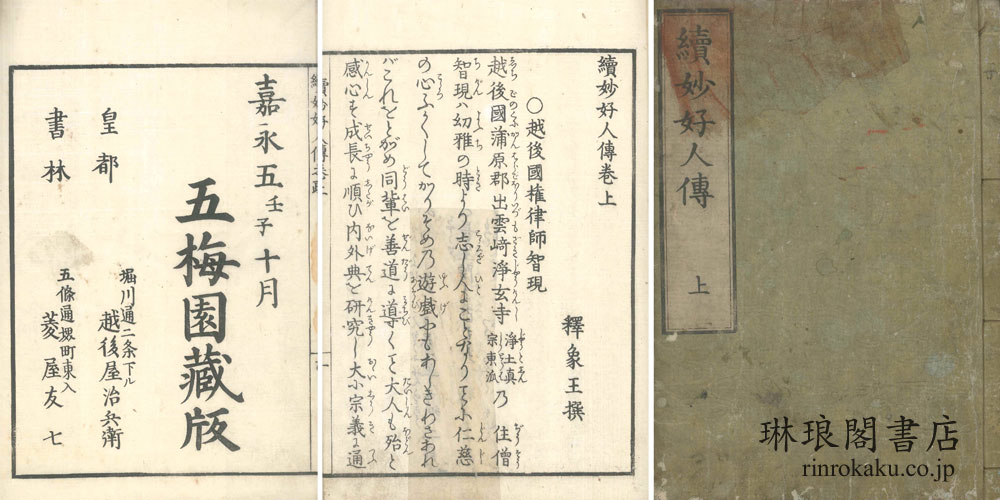 續妙好人傳
上
續妙好人傳卷上
釋象王撰
〇越後國権律師智現
越後國蒲原郡出雲﨑淨玄寺 淨土真宗東派 乃 住僧
智現ハ幼雅の時より志し人にことなりことに仁慈
の心ふかくしてかりそめ乃遊戯にもあしきわざあれ
バこれをとがめ同輩を善道に導くこと大人も殆と
感心せ成長に順ひ内外典を研究し大小宗義に通
嘉永五壬子十月
五梅園藏版
皇都
書林
堀川通二条下ル
越後屋治兵衛
五條通堺町東入
菱屋友七
琳琅閣書店
rinrokaku.co.jp